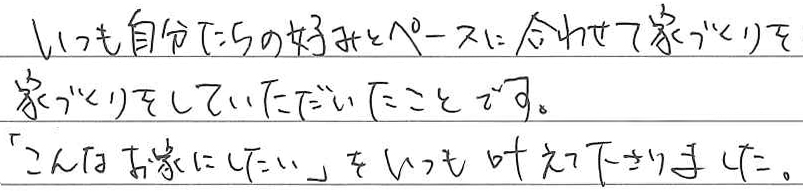 いつも自分たちの好みとペースに合わせて家づくりを
家づくりをしていただいたことです。
「こんなお家にしたい」をいつも叶えて下さりました。